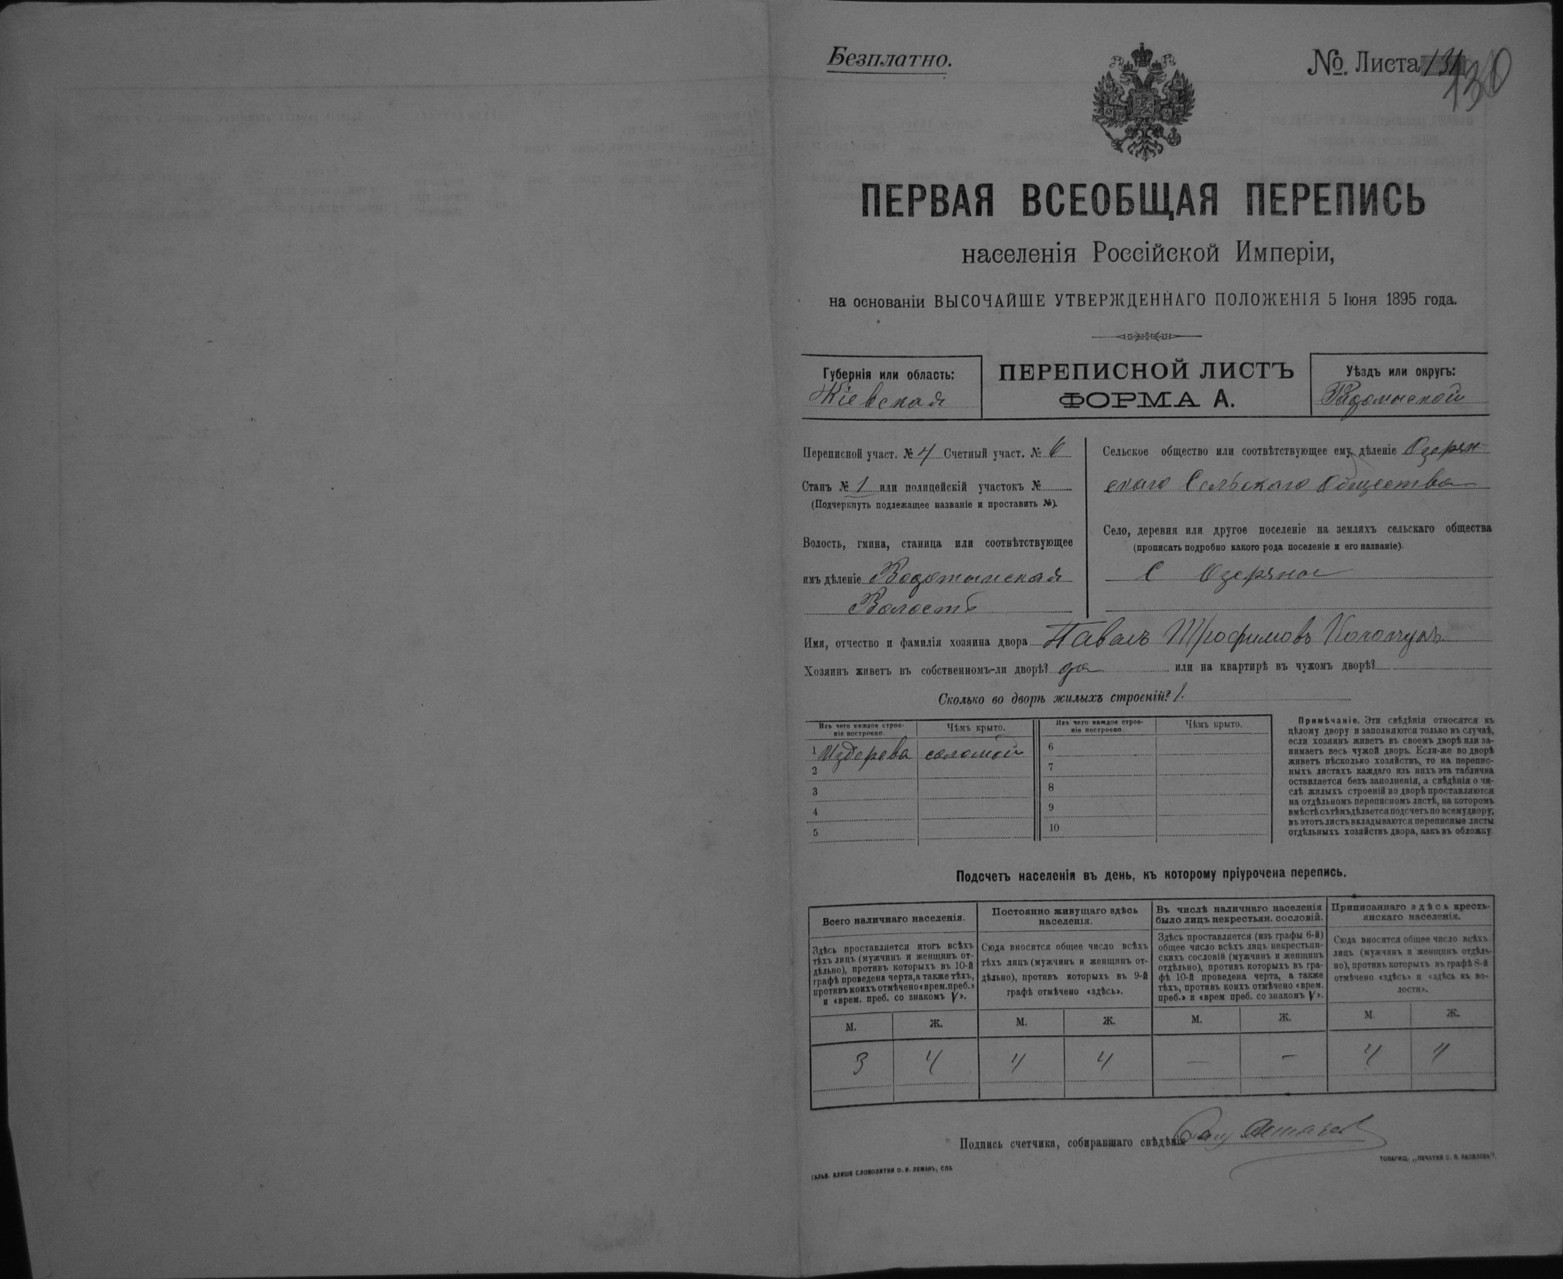 Безплатно.
№. Листа 130
ПЕРВАЯ ВСЕОБЩАЯ ПЕРЕПИСЬ
населенія Россійской Имперіи,
на основаніи ВЫСОЧАЙШЕ УТВЕРЖДЕННАГО ПОЛОЖЕНІЯ 5 Іюня 1895 года.
Губернія или область:
Кіевская
ПЕРЕПИСНОЙ ЛИСТЪ
ФОРМА А.
Уѣздъ или округъ:
Радомысской
Переписной участ. № 4 Счетный участ. № 6
Станъ № 1 или полицейскій участокъ №
(Подчеркнуть подлежащее названіе и проставить №).
Волость, гмина, станица или соотвѣтствующее
имъ дѣленіе Водотыйская
Волость
Сельское общество или соотвѣтствующее ему дѣленіе Озерян
скаго Сельскаго Общества
Село, деревня или другое поселеніе на земляхъ сельскаго общества
(прописать подробно какого рода поселеніе и его названіе).
С Озеряны
Имя, отчество и фамилія хозяина двора Павелъ Трофимовъ
Хозяинъ живетъ въ собственномъ-ли дворѣ? да или на квартирѣ въ чужомъ дворѣ?
Сколько во дворѣ жилыхъ строеній? 1.
Изъ чего каждое строе-
ніе построено.
Чѣмъ крыто.
1 Издерева соломой
2
3
4
5
Изъ чего каждое строе-
ніе построено.
Чѣмъ крыто.
6
7
8
9
10
Примѣчаніе. Эти свѣдѣнія относятся къ
цѣлому двору и заполняются только въ случаѣ,
если хозяинъ живетъ въ своемъ дворѣ или за-
нимаетъ весь чужой дворъ. Если-же во дворѣ
живетъ нѣсколько хозяйствъ, то на перепис-
ныхъ листахъ каждаго изъ нихъ эта табличка
оставляется безъ заполненія, а свѣдѣнія о чи-
слѣ жилыхъ строеній во дворѣ проставляются
на отдѣльномъ переписномъ листѣ, на которомъ
вмѣстѣ съ тѣмъ дѣлается подсчетъ по всему двору;
въ этотъ листъ вкладываются переписные листы
отдѣльныхъ хозяйствъ двора, какъ въ обложку.
Подсчетъ населенія въ день, къ которому пріурочена перепись.
Всего наличнаго населенія.
Здѣсь проставляется итогъ всѣхъ
тѣхъ лицъ (мужчинъ и женщинъ от-
дѣльно), противъ которыхъ въ 10-й
графѣ проведена черта, а также тѣхъ,
противъ коихъ отмѣчено «врем. преб.»
и «врем. преб. со знакомъ V».
Постоянно живущаго здѣсь
населенія.
Сюда вносится общее число всѣхъ
тѣхъ лицъ (мужчинъ и женщинъ от-
дѣльно), противъ которыхъ въ 9-й
графѣ отмѣчено «здѣсь».
Въ числѣ наличнаго населенія
было лицъ некрестьян. сословій.
Здѣсь проставляется (изъ графы 6-й)
общее число всѣхъ лицъ некрестьян-
скихъ сословій (мужчинъ и женщинъ
отдѣльно), противъ которыхъ въ гра-
фѣ 10-й проведена черта, а также
тѣхъ, противъ коихъ отмѣчено «врем.
преб.» и «врем преб. со знакомъ V».
Приписаннаго здѣсь кресть-
янскаго населенія.
Сюда вносится общее число всѣхъ
лицъ (мужчинъ и женщинъ отдѣль-
но), противъ которыхъ въ графѣ 8-й
отмѣчено «здѣсь» и «здѣсь въ во-
лости».
М. Ж. М. Ж. М. Ж. М. Ж.
3 4 4 4 — — 4 4
Подпись счетчика, собиравшаго свѣдѣнія
ГАЛЬВ. КЛИШЕ СЛОВОЛИТНИ О. И. ЛЕМАНЪ, СПБ.